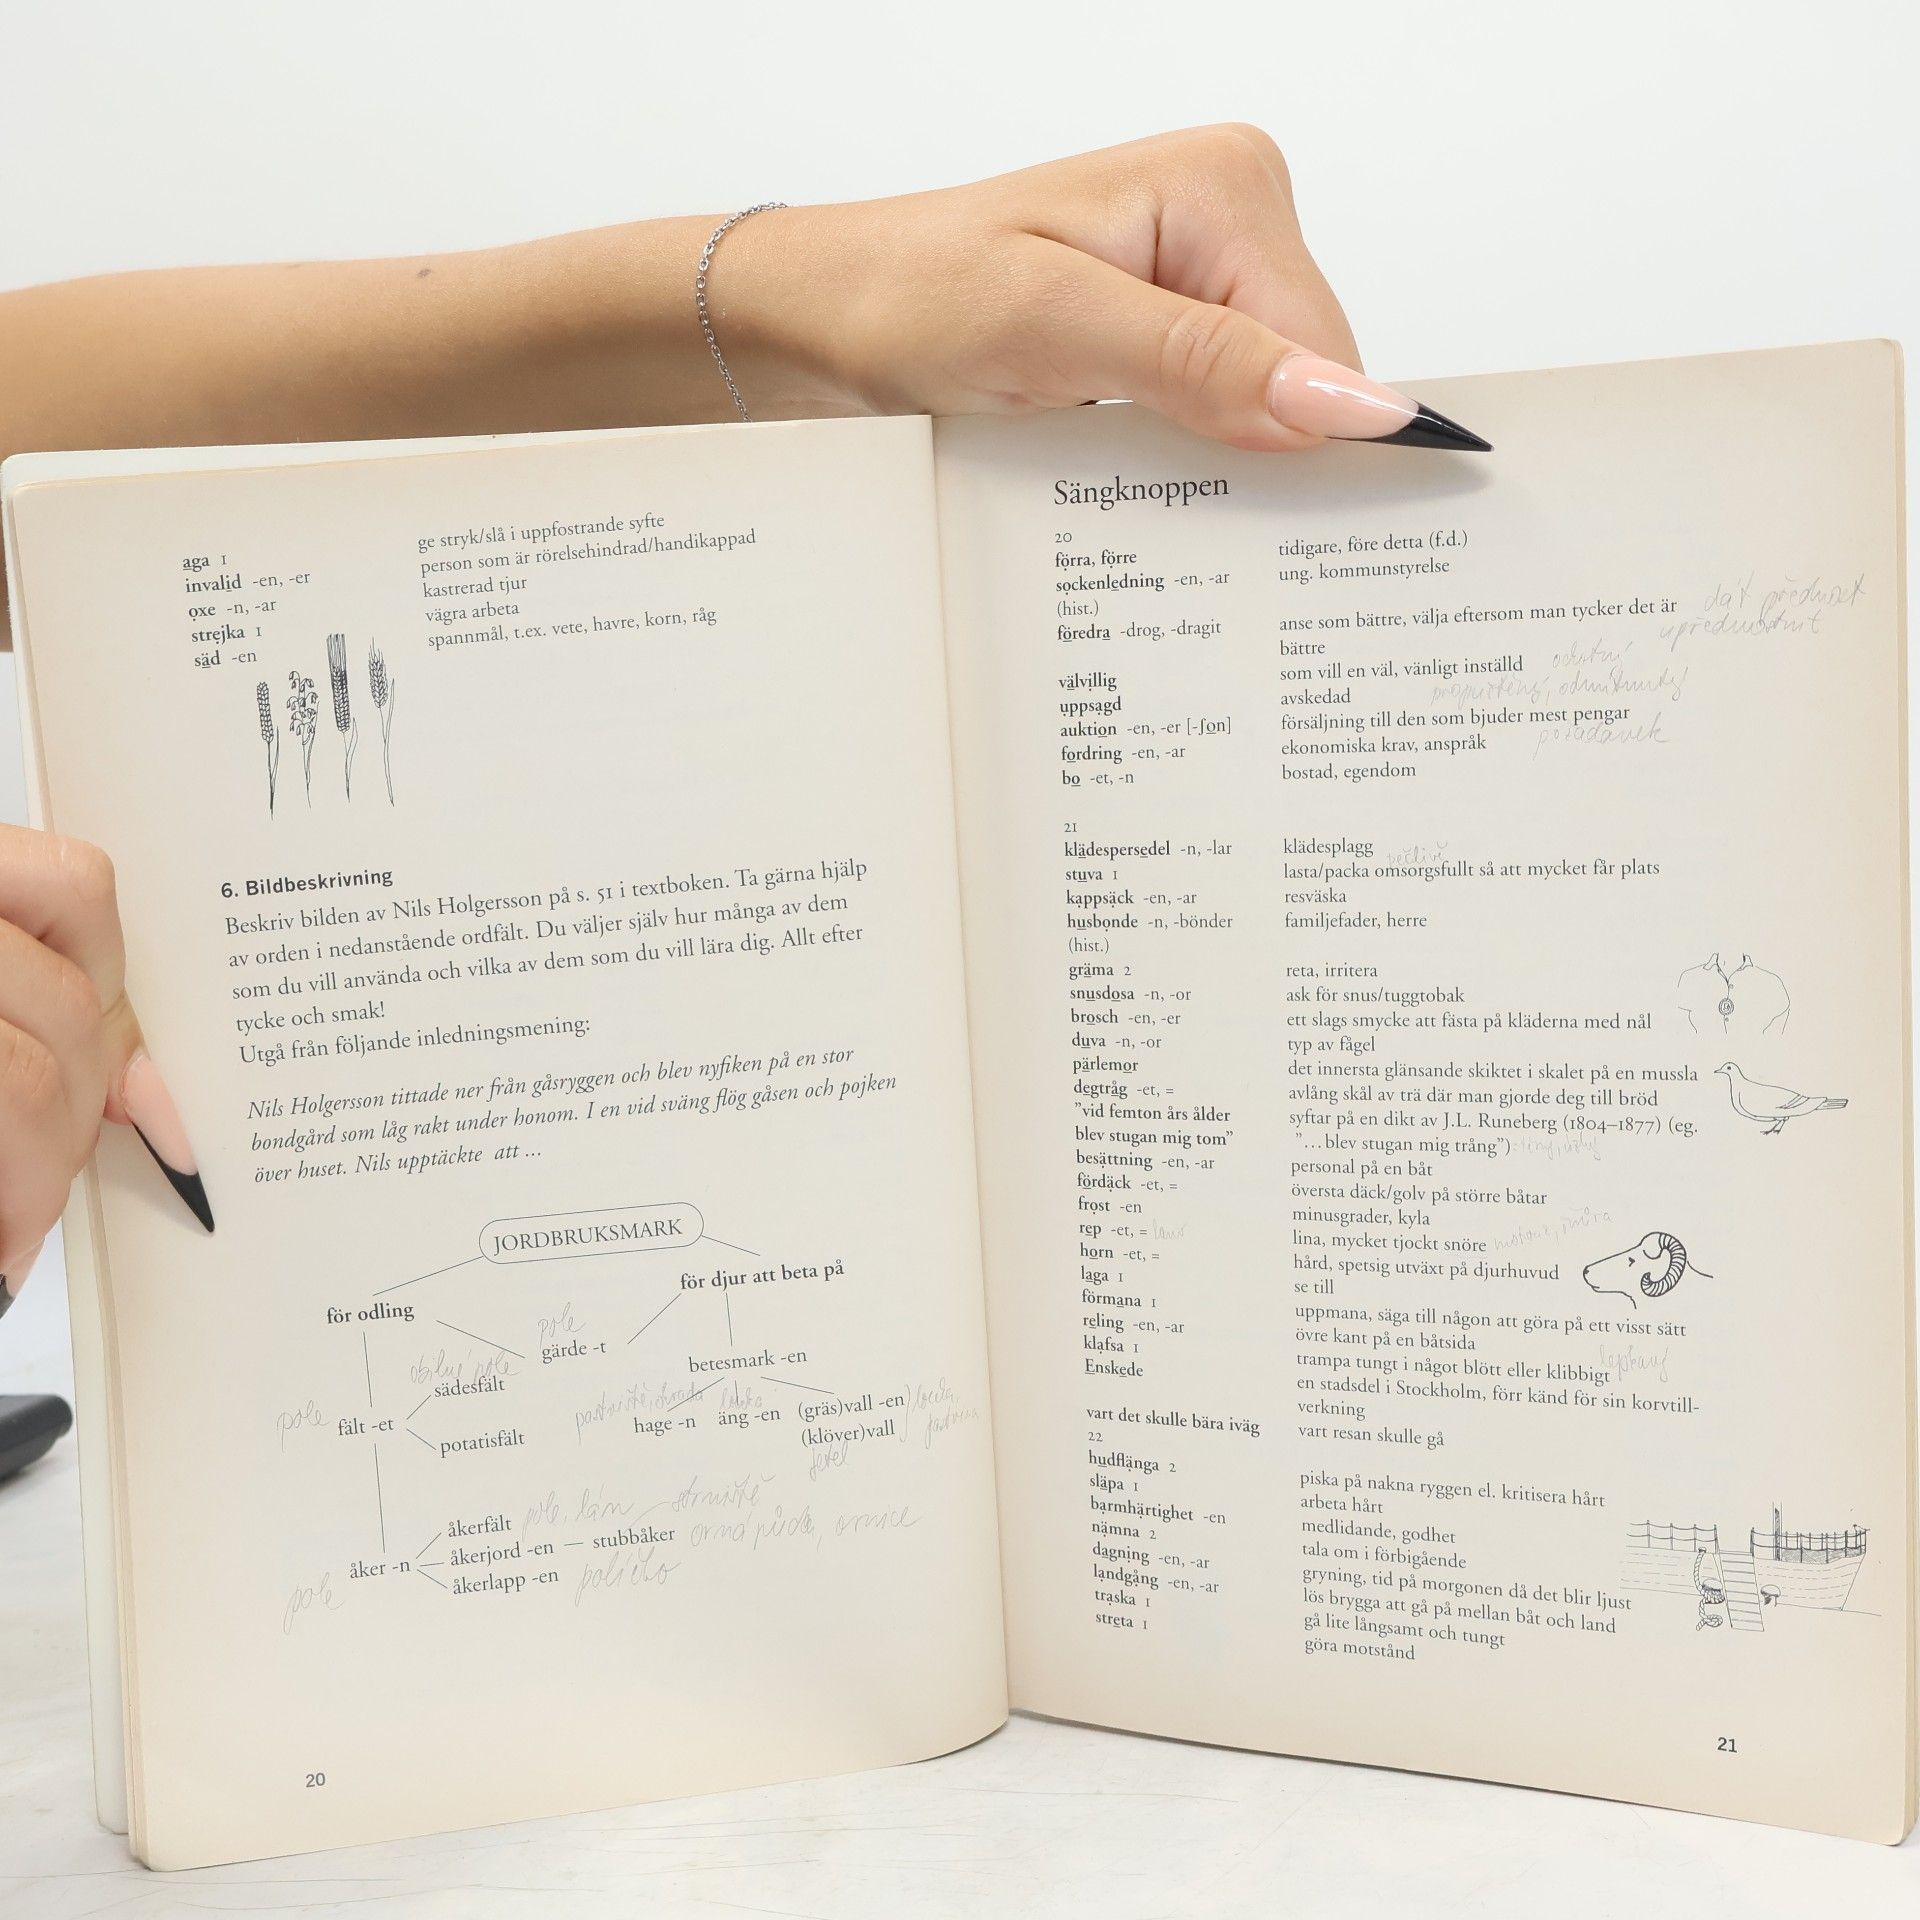 aga 1 ge stryk/slå i uppfostrande syfte
invalid -en, -er person som är rörelsehindrad/handikappad
oxe -n, -ar kastrerad tjur
strejka 1 vägra arbeta
säd -en spannmål, t.ex. vete, havre, korn, råg
6. Bildbeskrivning
Beskriv bilden av Nils Holgersson på s. 51 i textboken. Ta gärna hjälp
av orden i nedanstående ordfält. Du väljer själv hur många av dem
som du vill använda och vilka av dem som du vill lära dig. Allt efter
tycke och smak!
Utgå från följande inledningsmening:
Nils Holgersson tittade ner från gåsryggen och blev nyfiken på en stor
bondgård som låg rakt under honom. I en vid sväng flög gåsen och pojken
över huset. Nils upptäckte att ...
JORDBRUKSMARK
för odling
för djur att beta på
pole
gärde -t
betesmark -en
obilné pole
sädesfält
pole
fält -et
potatisfält
hage -n
äng -en
(gräs)vall -en
(klöver)vall
jetel
åkerfält pole, lán
strniště
åkerjord -en
stubbåker orná půda, ornice
åker -n
åkerlapp -en políčko
pole
20
Sängknoppen
20
förra, förre tidigare, före detta (f.d.)
sockenledning -en, -ar ung. kommunstyrelse
(hist.)
föredra -drog, -dragit anse som bättre, välja eftersom man tycker det är dát přednost
bättre upřednostnit
välvillig som vill en väl, vänligt inställd
uppsagd avskedad
auktion -en, -er [-ʃon] försäljning till den som bjuder mest pengar
fordring -en, -ar ekonomiska krav, anspråk požadavek
bo -et, -n bostad, egendom
21
klädespersedel -n, -lar klädesplagg
pečlivě
stuva 1 lasta/packa omsorgsfullt så att mycket får plats
kappsäck -en, -ar resväska
husbonde -n, -bönder familjefader, herre
(hist.)
gräma 2 reta, irritera
snusdosa -n, -or ask för snus/tuggtobak
brosch -en, -er ett slags smycke att fästa på kläderna med nål
duva -n, -or typ av fågel
pärlemor det innersta glänsande skiktet i skalet på en mussla
degtråg -et, = avlång skål av trä där man gjorde deg till bröd
"vid femton års ålder syftar på en dikt av J.L. Runeberg (1804–1877) (eg.
blev stugan mig tom" "...blev stugan mig trång")
besättning -en, -ar personal på en båt
fördäck -et, = översta däck/golv på större båtar
frost -en minusgrader, kyla
rep -et, = lano lina, mycket tjockt snöre
horn -et, = hård, spetsig utväxt på djurhuvud
laga 1 se till
förmana 1 uppmana, säga till någon att göra på ett visst sätt
reling -en, -ar övre kant på en båtsida
klafsa 1 trampa tungt i något blött eller klibbigt lepkavý
Enskede en stadsdel i Stockholm, förr känd för sin korvtill-
verkning
vart det skulle bära iväg vart resan skulle gå
22
hudflänga 2 piska på nakna ryggen el. kritisera hårt
släpa 1 arbeta hårt
barmhärtighet -en medlidande, godhet
nämna 2 tala om i förbigående
dagning -en, -ar gryning, tid på morgonen då det blir ljust
landgång -en, -ar lös brygga att gå på mellan båt och land
traska 1 gå lite långsamt och tungt
streta 1 göra motstånd
21